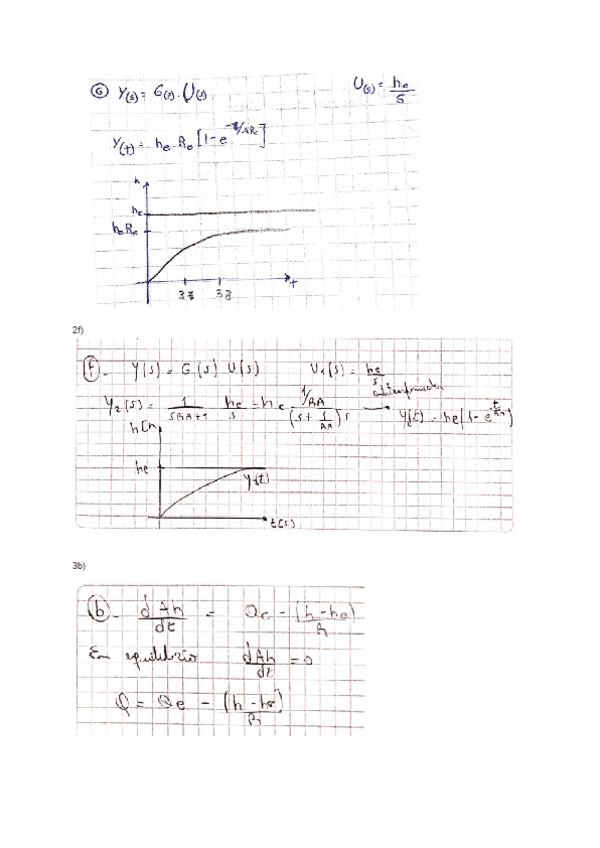 G Y(s) = G(s) · U(s) U(s) = he/s
Y(t) = he · Re [1 - e^(-t/ARe)]
h
he
he Re
3z 5z t
2f)
f). Y(s) = G(s) U(s) U1(s) = he/s
Y2(s) = 1/(sRA+1) he/s = he (1/RA)/((s + 1/RA) s) → y(t) = he(1 - e^(-t/RA))
he y1(t)
t(s)
3b)
b). dAh/dt = Qe - (h - he)/R
En equilibrio dAh/dt = 0
Q = Qe - (h - he)/R